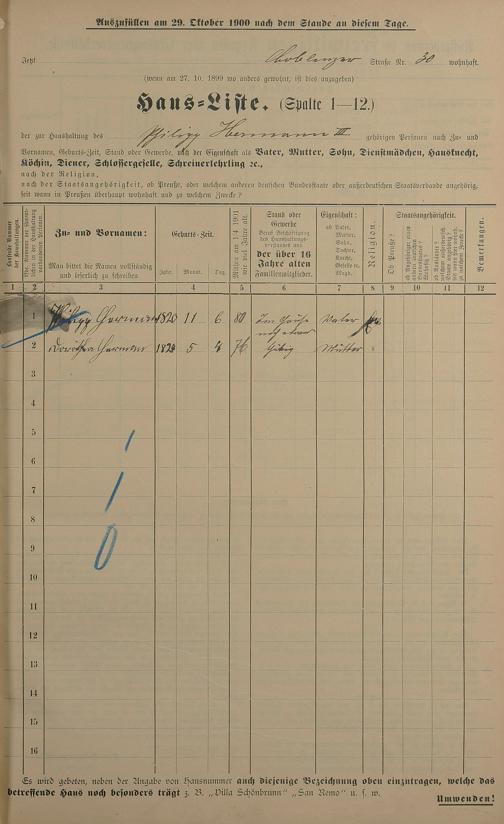 Auszufüllen am 29. Oktober 1900 nach dem Stande an diesem Tage.
Jetzt Coblenzer Straße Nr. 30 wohnhaft.
(wenn am 27. 10. 1899 wo anders gewohnt, ist dies anzugeben)
Haus=Liste. (Spalte 1—12.)
der zur Haushaltung des Philipp Hermann III gehörigen Personen nach Zu= und
Vornamen, Geburts=Zeit, Stand oder Gewerbe, nach der Eigenschaft als Vater, Mutter, Sohn, Dienstmädchen, Hausknecht,
Köchin, Diener, Schlossergeselle, Schreinerlehrling ec.,
nach der Religion,
nach der Staatsangehörigkeit, ob Preuße, oder welchem anderen deutschen Bundesstaate oder außerdeutschen Staatsverbande angehörig,
seit wann in Preußen überhaupt wohnhaft und zu welchem Zwecke?
Zu= und Vornamen:
Man bittet die Namen vollständig
und leserlich zu schreiben
Geburts=Zeit.
Jahr. Monat. Tag.
Stand oder
Gewerbe
der über 16
Jahre alten
Familienmitglieder.
Eigenschaft:
ob Vater,
Mutter,
Sohn,
Tochter,
Knecht,
Geselle rc.
Magd.
Religion.
Staatsangehörigkeit.
Ob Preuße?
Bemerkungen.
1 2 3 4 5 6 7 8 9 10 11 12
1 Philipp Herman 1820 11 6 80 Vater
2 Dorothea Herman 5 76 Mutter
3
4
5
6
7
8
9
10
11
12
13
14
15
16
Es wird gebeten, neben der Angabe von Hausnummer auch diejenige Bezeichnung oben einzutragen, welche das
betreffende Haus noch besonders trägt z. B. „Villa Schönbrunn“ „San Remo“ u. s. w.
Umwenden!